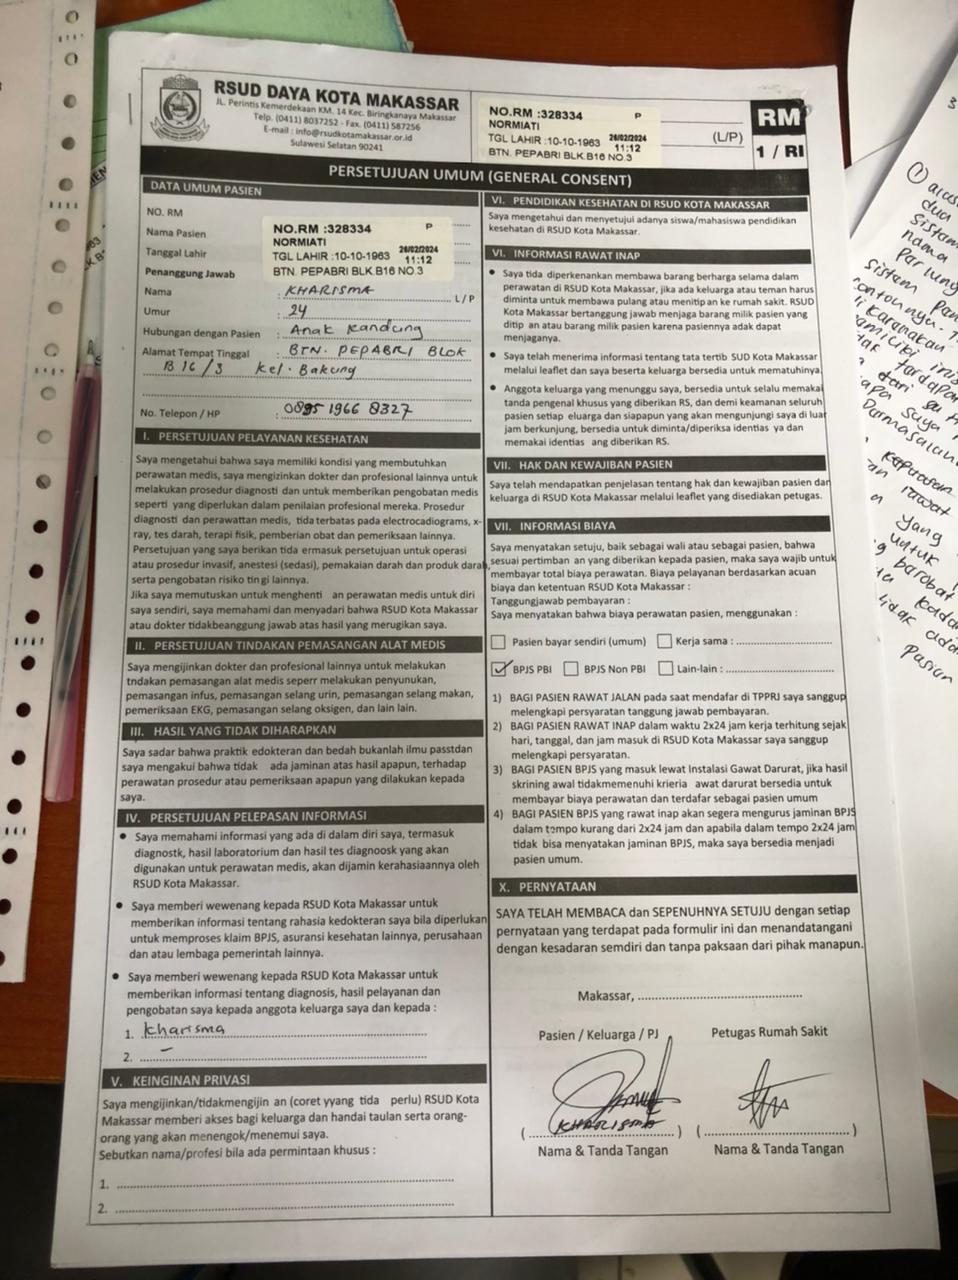 RSUD DAYA KOTA MAKASSAR
JL. Perintis Kemerdekaan KM. 14 Kec. Biringkanaya Makassar
Telp. (0411) 8037252 - Fax. (0411) 587256
E-mail : info@rsudkotamakassar.or.id
Sulawesi Selatan 90241
NO.RM :328334 P
NORMIATI
TGL LAHIR :10-10-1963 26/02/2024 11:12
BTN. PEPABRI BLK.B16 NO.3
(L/P)
RM
1 / RI
PERSETUJUAN UMUM (GENERAL CONSENT)
DATA UMUM PASIEN
NO. RM
Nama Pasien
Tanggal Lahir
NO.RM :328334 P
NORMIATI
TGL LAHIR :10-10-1963 26/02/2024 11:12
BTN. PEPABRI BLK.B16 NO.3
Penanggung Jawab
Nama : KHARISMA L/P
Umur : 24
Hubungan dengan Pasien : Anak Kandung
Alamat Tempat Tinggal : BTN. PEPABRI BLOK
B 16/3 Kel. Bakung
No. Telepon / HP : 0895 1966 8327
I. PERSETUJUAN PELAYANAN KESEHATAN
Saya mengetahui bahwa saya memiliki kondisi yang membutuhkan
perawatan medis, saya mengizinkan dokter dan profesional lainnya untuk
melakukan prosedur diagnosti dan untuk memberikan pengobatan medis
seperti yang diperlukan dalam penilaian profesional mereka. Prosedur
diagnosti dan perawattan medis, tida terbatas pada electrocadiograms, x-
ray, tes darah, terapi fisik, pemberian obat dan pemeriksaan lainnya.
Persetujuan yang saya berikan tida ermasuk persetujuan untuk operasi
atau prosedur invasif, anestesi (sedasi), pemakaian darah dan produk darah,
serta pengobatan risiko tin gi lainnya.
Jika saya memutuskan untuk menghenti an perawatan medis untuk diri
saya sendiri, saya memahami dan menyadari bahwa RSUD Kota Makassar
atau dokter tidakbeanggung jawab atas hasil yang merugikan saya.
II. PERSETUJUAN TINDAKAN PEMASANGAN ALAT MEDIS
Saya mengijinkan dokter dan profesional lainnya untuk melakukan
tndakan pemasangan alat medis seperr melakukan penyunukan,
pemasangan infus, pemasangan selang urin, pemasangan selang makan,
pemeriksaan EKG, pemasangan selang oksigen, dan lain lain.
III. HASIL YANG TIDAK DIHARAPKAN
Saya sadar bahwa praktik edokteran dan bedah bukanlah ilmu passtdan
saya mengakui bahwa tidak ada jaminan atas hasil apapun, terhadap
perawatan prosedur atau pemeriksaan apapun yang dilakukan kepada
saya.
IV. PERSETUJUAN PELEPASAN INFORMASI
• Saya memahami informasi yang ada di dalam diri saya, termasuk
diagnostk, hasil laboratorium dan hasil tes diagnoosk yang akan
digunakan untuk perawatan medis, akan dijamin kerahasiaannya oleh
RSUD Kota Makassar.
• Saya memberi wewenang kepada RSUD Kota Makassar untuk
memberikan informasi tentang rahasia kedokteran saya bila diperlukan
untuk memproses klaim BPJS, asuransi kesehatan lainnya, perusahaan
dan atau lembaga pemerintah lainnya.
• Saya memberi wewenang kepada RSUD Kota Makassar untuk
memberikan informasi tentang diagnosis, hasil pelayanan dan
pengobatan saya kepada anggota keluarga saya dan kepada :
1. Kharisma
2. –
V. KEINGINAN PRIVASI
Saya mengijinkan/tidakmengijin an (coret yyang tida perlu) RSUD Kota
Makassar memberi akses bagi keluarga dan handai taulan serta orang-
orang yang akan menengok/menemui saya.
Sebutkan nama/profesi bila ada permintaan khusus :
1.
2.
VI. PENDIDIKAN KESEHATAN DI RSUD KOTA MAKASSAR
Saya mengetahui dan menyetujui adanya siswa/mahasiswa pendidikan
kesehatan di RSUD Kota Makassar.
VI. INFORMASI RAWAT INAP
• Saya tida diperkenankan membawa barang berharga selama dalam
perawatan di RSUD Kota Makassar, jika ada keluarga atau teman harus
diminta untuk membawa pulang atau menitip an ke rumah sakit. RSUD
Kota Makassar bertanggung jawab menjaga barang milik pasien yang
ditip an atau barang milik pasien karena pasiennya adak dapat
menjaganya.
• Saya telah menerima informasi tentang tata tertib SUD Kota Makassar
melalui leaflet dan saya beserta keluarga bersedia untuk mematuhinya.
• Anggota keluarga yang menunggu saya, bersedia untuk selalu memakai
tanda pengenal khusus yang diberikan RS, dan demi keamanan seluruh
pasien setiap eluarga dan siapapun yang akan mengunjungi saya di luar
jam berkunjung, bersedia untuk diminta/diperiksa identias ya dan
memakai identias ang diberikan RS.
VII. HAK DAN KEWAJIBAN PASIEN
Saya telah mendapatkan penjelasan tentang hak dan kewajiban pasien dan
keluarga di RSUD Kota Makassar melalui leaflet yang disediakan petugas.
VII. INFORMASI BIAYA
Saya menyatakan setuju, baik sebagai wali atau sebagai pasien, bahwa
sesuai pertimban an yang diberikan kepada pasien, maka saya wajib untuk
membayar total biaya perawatan. Biaya pelayanan berdasarkan acuan
biaya dan ketentuan RSUD Kota Makassar :
Tanggungjawab pembayaran :
Saya menyatakan bahwa biaya perawatan pasien, menggunakan :
Pasien bayar sendiri (umum) Kerja sama :
✓ BPJS PBI BPJS Non PBI Lain-lain :
1) BAGI PASIEN RAWAT JALAN pada saat mendafar di TPPRJ saya sanggup
melengkapi persyaratan tanggung jawab pembayaran.
2) BAGI PASIEN RAWAT INAP dalam waktu 2x24 jam kerja terhitung sejak
hari, tanggal, dan jam masuk di RSUD Kota Makassar saya sanggup
melengkapi persyaratan.
3) BAGI PASIEN BPJS yang masuk lewat Instalasi Gawat Darurat, jika hasil
skrining awal tidakmemenuhi krieria awat darurat bersedia untuk
membayar biaya perawatan dan terdafar sebagai pasien umum
4) BAGI PASIEN BPJS yang rawat inap akan segera mengurus jaminan BPJS
dalam tempo kurang dari 2x24 jam dan apabila dalam tempo 2x24 jam
tidak bisa menyatakan jaminan BPJS, maka saya bersedia menjadi
pasien umum.
X. PERNYATAAN
SAYA TELAH MEMBACA dan SEPENUHNYA SETUJU dengan setiap
pernyataan yang terdapat pada formulir ini dan menandatangani
dengan kesadaran semdiri dan tanpa paksaan dari pihak manapun.
Makassar,
Pasien / Keluarga / PJ Petugas Rumah Sakit
( KHARISMA ) ( )
Nama & Tanda Tangan Nama & Tanda Tangan
dua
Sistem
nama
Sistem
dari
yang
untuk
tidak
Pasien